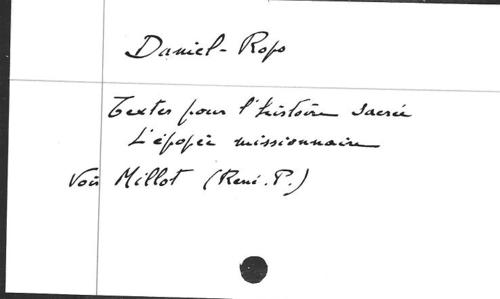 Daniel-Rops
Textes pour l'histoire sacrée
L'épopée missionnaire
Voir Millot (René.P.)